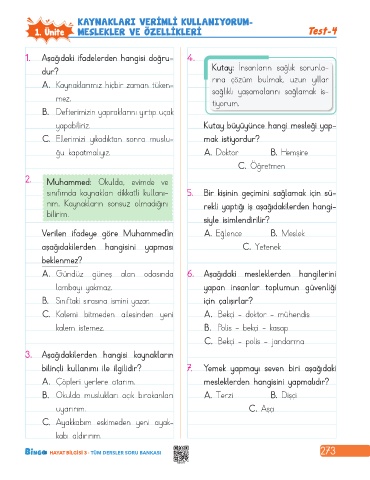 1. Ünite
KAYNAKLARI VERİMLİ KULLANIYORUM-
MESLEKLER VE ÖZELLİKLERİ
Test-4
1. Aşağıdaki ifadelerden hangisi doğru-
dur?
A. Kaynaklarımız hiçbir zaman tüken-
mez.
B. Defterimizin yapraklarını yırtıp uçak
yapabiliriz.
C. Ellerimizi yıkadıktan sonra muslu-
ğu kapatmalıyız.
2. Muhammed: Okulda, evimde ve
sınıfımda kaynakları dikkatli kullanı-
rım. Kaynakların sonsuz olmadığını
bilirim.
Verilen ifadeye göre Muhammed'in
aşağıdakilerden hangisini yapması
beklenmez?
A. Gündüz güneş alan odasında
lambayı yakmaz.
B. Sınıftaki sırasına ismini yazar.
C. Kalemi bitmeden ailesinden yeni
kalem istemez.
3. Aşağıdakilerden hangisi kaynakların
bilinçli kullanımı ile ilgilidir?
A. Çöpleri yerlere atarım.
B. Okulda muslukları açık bırakanları
uyarırım.
C. Ayakkabım eskimeden yeni ayak-
kabı aldırırım.
4. Kutay: İnsanların sağlık sorunla-
rına çözüm bulmak, uzun yıllar
sağlıklı yaşamalarını sağlamak is-
tiyorum.
Kutay büyüyünce hangi mesleği yap-
mak istiyordur?
A. Doktor B. Hemşire
C. Öğretmen
5. Bir kişinin geçimini sağlamak için sü-
rekli yaptığı iş aşağıdakilerden hangi-
siyle isimlendirilir?
A. Eğlence B. Meslek
C. Yetenek
6. Aşağıdaki mesleklerden hangilerini
yapan insanlar toplumun güvenliği
için çalışırlar?
A. Bekçi - doktor - mühendis
B. Polis - bekçi - kasap
C. Bekçi - polis - jandarma
7. Yemek yapmayı seven biri aşağıdaki
mesleklerden hangisini yapmalıdır?
A. Terzi B. Dişçi
C. Aşçı
BİNGO HAYAT BİLGİSİ 3 - TÜM DERSLER SORU BANKASI
273